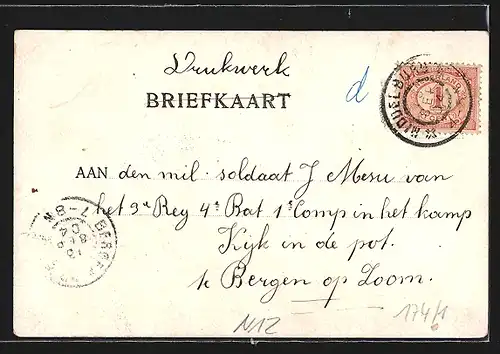 Drukwerk
BRIEFKAART
d
MIDDELBURG
1
AAN den mil. soldaat J Mesu van
het 3e Reg 4e Bat 1e Comp in het kamp
Kijk in de pot.
te Bergen op Zoom.
7-8 N
BERGEN
N12
174/1